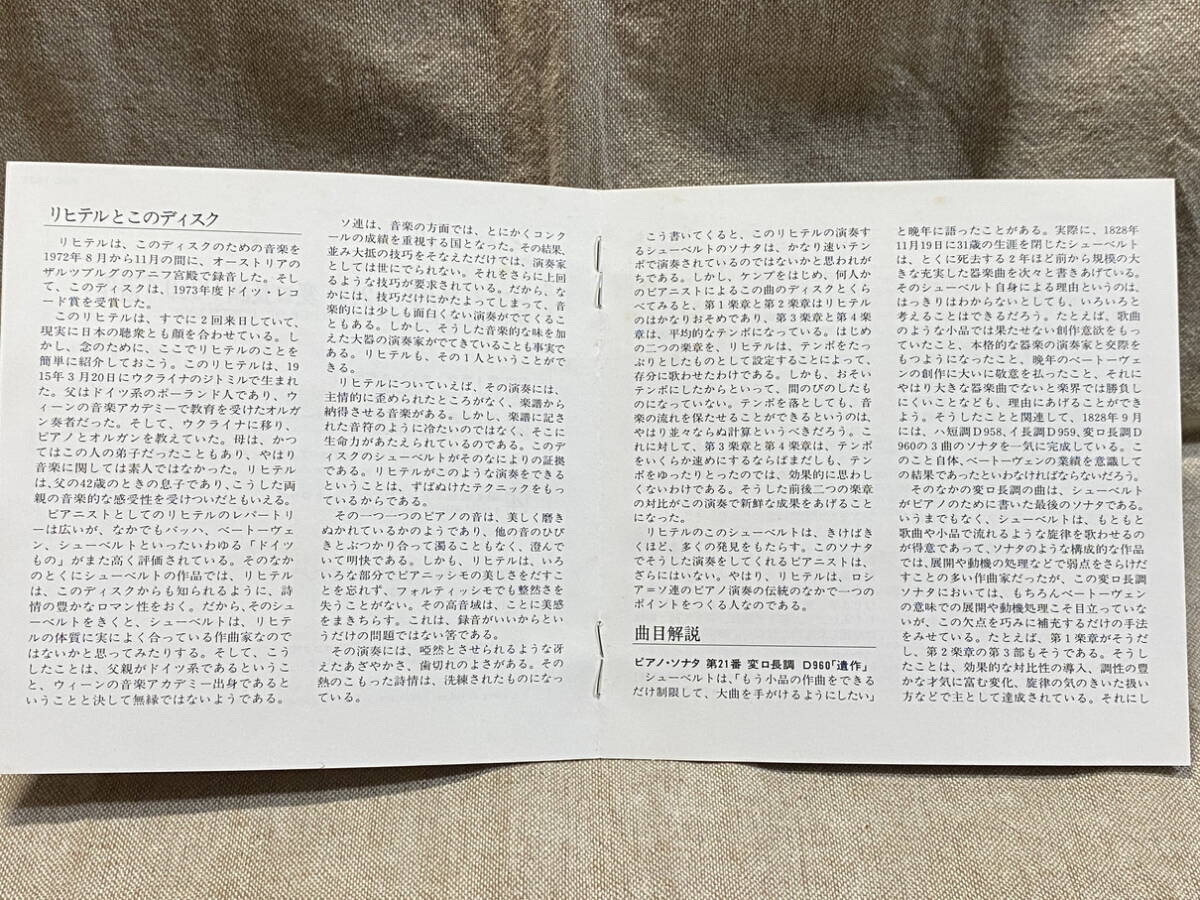 リヒテルとこのディスク
リヒテルは、このディスクのための音楽を
1972年8月から11月の間に、オーストリアの
ザルツブルグのアニフ宮殿で録音した。そし
て、このディスクは、1973年度ドイツ・レコ
ード賞を受賞した。
このリヒテルは、すでに2回来日していて、
現実に日本の聴衆とも顔を合わせている。し
かし、念のために、ここでリヒテルのことを
簡単に紹介しておこう。このリヒテルは、19
15年3月20日にウクライナのジトミルで生まれ
た。父はドイツ系のポーランド人であり、ウ
ィーンの音楽アカデミーで教育を受けたオルガ
ン奏者だった。そして、ウクライナに移り、
ピアノとオルガンを教えていた。母は、かつ
てはこの人の弟子だったこともあり、やはり
音楽に関しては素人ではなかった。リヒテル
は、父の42歳のときの息子であり、こうした両
親の音楽的な感受性を受けついだともいえる。
ピアニストとしてのリヒテルのレパートリ
ーは広いが、なかでもバッハ、ベートーヴェ
ン、シューベルトといったいわゆる「ドイツ
もの」がまた高く評価されている。そのなか
のとくにシューベルトの作品では、リヒテル
は、このディスクからも知られるように、詩
情の豊かなロマン性をおく。だから、そのシュ
ーベルトをきくと、シューベルトは、リヒテ
ルの体質に実によく合っている作曲家なので
はないかと思ってみたりする。そして、こう
したことは、父親がドイツ系であるというこ
と、ウィーンの音楽アカデミー出身であると
いうことと決して無縁ではないようである。
ソ連は、音楽の方面では、とにかくコンク
ールの成績を重視する国となった。その結果、
並み大抵の技巧をそなえただけでは、演奏家
としては世にでられない。それをさらに上回
るような技巧が要求されている。だから、な
かには、技巧だけにかたよってしまって、音
楽的には少しも面白くない演奏がでてくるこ
ともある。しかし、そうした音楽的な味を加
えた大器の演奏家がでてきていることも事実で
ある。リヒテルも、その1人ということがで
きる。
リヒテルについていえば、その演奏には、
主情的に歪められたところがなく、楽譜から
納得させる音楽がある。しかし、楽譜に記さ
れた音符のように冷たいのではなく、そこに
生命力があたえられているのである。このデ
ィスクのシューベルトがそのなによりの証拠
である。リヒテルがこのような演奏をできる
ということは、ずばぬけたテクニックをもっ
ているからである。
その一つ一つのピアノの音は、美しく磨き
ぬかれているかのようであり、他の音のひび
きとぶつかり合って濁ることもなく、澄んで
いて明快である。しかも、リヒテルは、いろ
いろな部分でピアニッシモの美しさをだすこ
とを忘れず、フォルティッシモでも整然さを
失うことがない。その高音域は、ことに美感
をまきちらす。これは、録音がいいからとい
うだけの問題ではない筈である。
その演奏には、唖然とさせられるような冴
えたあざやかさ、歯切れのよさがある。その
熱のこもった詩情は、洗練されたものになっ
ている。
こう書いてくると、このリヒテルの演奏す
るシューベルトのソナタは、かなり速いテン
ポで演奏されているのではないかと思われが
ちである。しかし、ケンプをはじめ、何人か
のピアニストによるこの曲のディスクとくら
べてみると、第1楽章と第2楽章はリヒテル
のはかなりおそめであり、第3楽章と第4楽
章は、平均的なテンポになっている。はじめ
の二つの楽章を、リヒテルは、テンポをたっ
ぷりとしたものとして設定することによって、
存分に歌わせたわけである。しかも、おそい
テンポにしたからといって、間のびのしたも
のになっていない。テンポを落としても、音
楽の流れを保たせることができるというのは、
やはり並々ならぬ計算というべきだろう。こ
れに対して、第3楽章と第4楽章は、テンポ
をいくらか速めにするならばまだしも、テン
ポをゆったりとったのでは、効果的に思わし
くないわけである。そうした前後二つの楽章
の対比がこの演奏で新鮮な成果をあげること
になった。
リヒテルのこのシューベルトは、きけばき
くほど、多くの発見をもたらす。このソナタ
でそうした演奏をしてくれるピアニストは、
ざらにはいない。やはり、リヒテルは、ロシ
ア=ソ連のピアノ演奏の伝統のなかで一つの
ポイントをつくる人なのである。
曲目解説
ピアノ・ソナタ 第21番 変ロ長調 D960「遺作」
シューベルトは、「もう小品の作曲をできる
だけ制限して、大曲を手がけるようにしたい」
と晩年に語ったことがある。実際に、1828年
11月19日に31歳の生涯を閉じたシューベルト
は、とくに死去する2年ほど前から規模の大
きな充実した器楽曲を次々と書きあげている。
そのシューベルト自身による理由というのは、
はっきりはわからないとしても、いろいろと
考えることはできるだろう。たとえば、歌曲
のような小品では果たせない創作意欲をもっ
ていたこと、本格的な器楽の演奏家と交際を
もつようになったこと、晩年のベートーヴェ
ンの創作に大いに敬意を払ったこと、それに
やはり大きな器楽曲でないと楽界では勝負し
にくいことなども、理由にあげることができ
よう。そうしたことと関連して、1828年9月
には、ハ短調D958、イ長調D959、変ロ長調D
960の3曲のソナタを一気に完成している。こ
のこと自体、ベートーヴェンの業績を意識して
の結果であったといわなければならないだろう。
そのなかの変ロ長調の曲は、シューベルト
がピアノのために書いた最後のソナタである。
いうまでもなく、シューベルトは、もともと
歌曲や小品で流れるような旋律を歌わせるの
が得意であって、ソナタのような構成的な作品
では、展開や動機の処理などで弱点をさらけだ
すことの多い作曲家だったが、この変ロ長調
ソナタにおいては、もちろんベートーヴェン
の意味での展開や動機処理こそ目立っていな
いが、この欠点を巧みに補充するだけの手法
をみせている。たとえば、第1楽章がそうだ
し、第2楽章の第3部もそうである。そうし
たことは、効果的な対比性の導入、調性の豊
かな才気に富む変化、旋律の気のきいた扱い
方などで主として達成されている。それにし